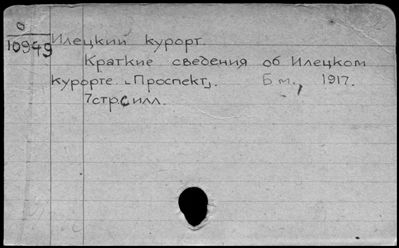 0
10949 Илецкий курорт.
Краткие сведения об Илецком
курорте. "Проспект". Б м., 1917.
7стр. с илл.